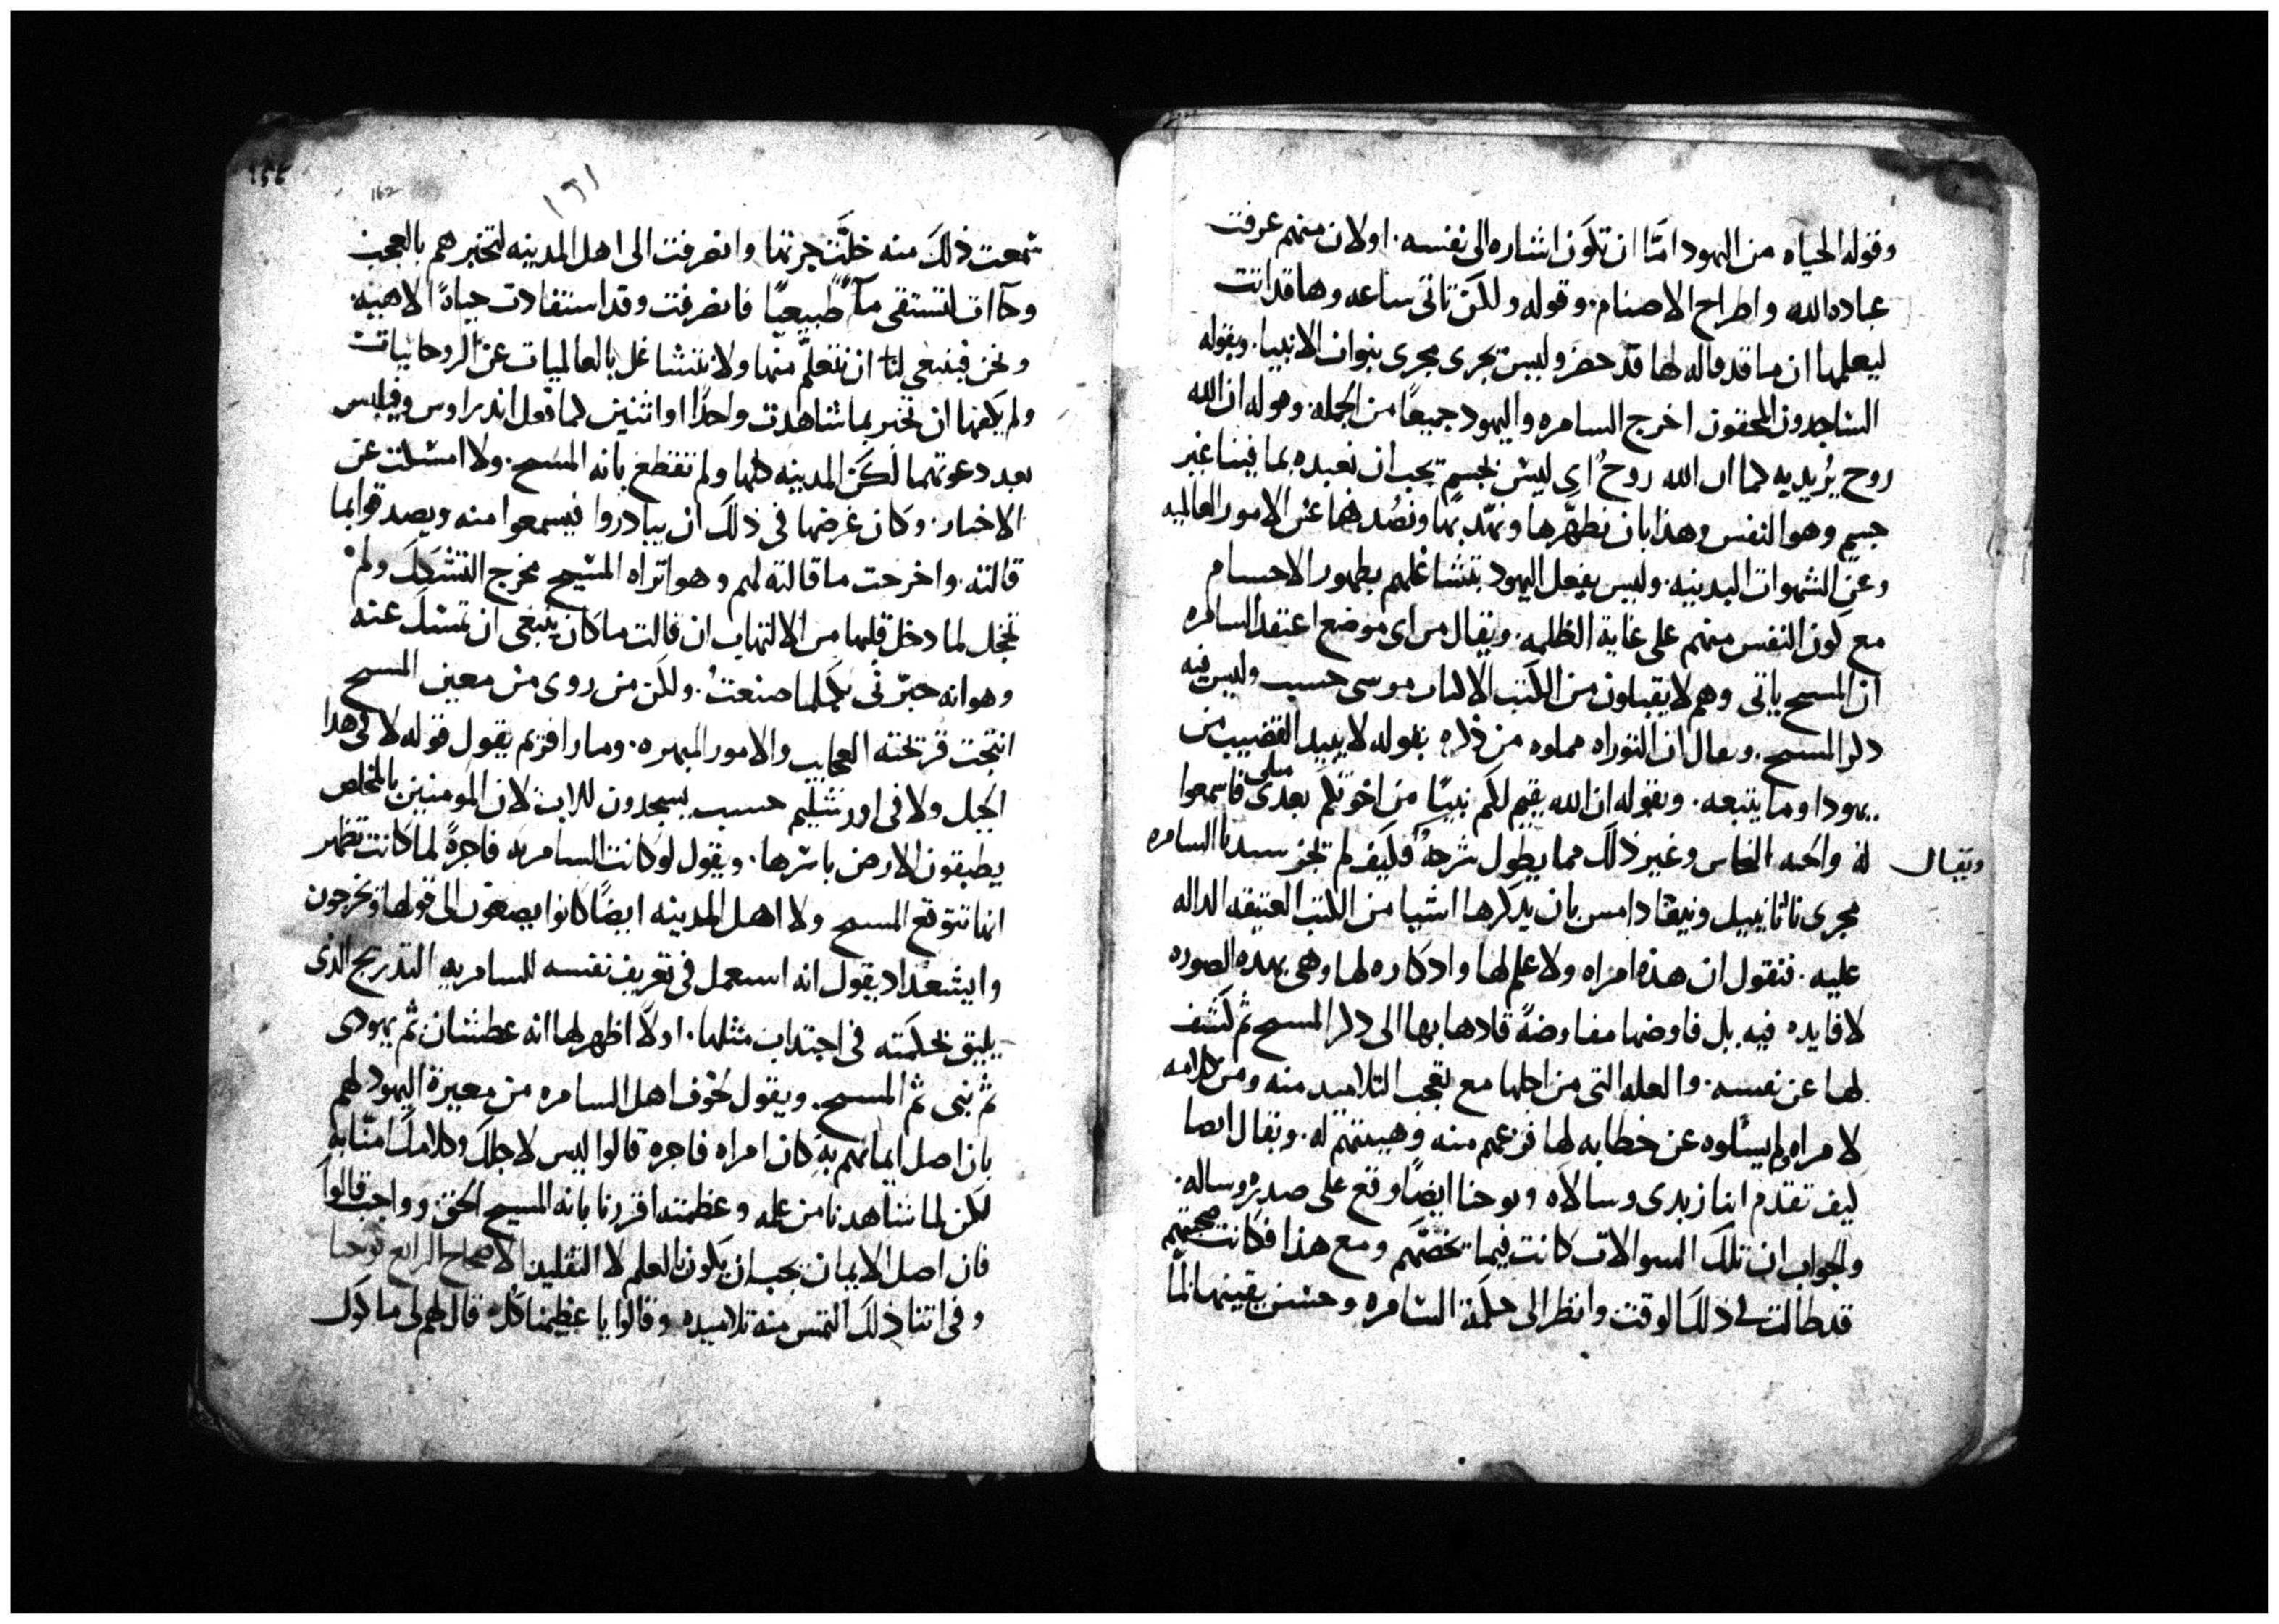 وقوله الحياه من اليهود امّا ان تكون اشاره الى نفسه. اولان منهم عرفت
عباده الله واطراح الاصنام. وقوله ولكن تاتى ساعه وها قد اتت
ليعلمها ان ما قد قاله لها قد حضر وليس تجرى مجرى بنوات الانبيا. وبقوله
الساجدون المحقون اخرج السامره واليهود جميعًا من الجمله. وقوله ان الله
روح يُريد به كما ان الله روحٌ اى ليس بجسم يجب ان نعبده بما فينا غير
جسم وهو النفس وهذا بان نطهّرها ونهذبها ونصُدفها عن الامور العالميه
وعن الشهوات البدنيه. وليس بفعل اليهود بتشاغلهم بطهور الاجسام
مع كون النفس منهم على غاية الظلمه. ويقال من اى موضع اعتقد السامره
ان المسيح ياتى وهم لا يقبلون من الكتب الا كتاب موسى حسب وليس فيه
ذكر المسيح. ويقال ان التوراه مملوه من ذكره بقوله لا يبيد القضيب من
يهودا وما يتبعه. وبقوله ان الله يقيم لكم نبيًا من اخوتكم بعدى مثلى فاسمعوا
له والحيه النحاس وغير ذلك مما يطول شرحه فكيف لم تجز سيدنا السامره
ويقال
مجرى ناثانييل ونيقادامس بان يذكرها اشيا من الكتب العتيقه الداله
عليه. فنقول ان هذه امراه ولا علم لها واذكاره لها وهى بهذه الصوره
لا فايده فيه بل فاوضها مفاوضةً قادها بها الى ذكر المسيح ثم كشف
لها عن نفسه. والعله التى من اجلها مع تعجب التلاميد منه ومن كلامه
لامراه ولم يسئلوه عن خطابه لها فزعهم منه وهيبتهم له. ويقال ايضا
كيف تقدم ابنا زبدى وسالاه ويوحنا ايضًا وقع على صدره وساله.
والجواب ان تلك السوالات كانت فيما تخصّهم ومع هذا فكانت صحبتهم
قد طالت فى ذلك الوقت وانظر الى حكمة السامره وحسن يقينها لمّا
١٦١
162
سمعت ذلك منه خلّت جرتها وانصرفت الى اهل المدينه لتخبرهم بالعجب
وجاات لتستقى مآءً طبيعيًا فانصرفت وقد استفادت حياةً الاهيه.
ونحن فينبغي لنا ان نتعلّم منها ولا نتشاغل بالعالميات عن الروحانيات
ولم يكفها ان تخبر بما شاهدت واحدًا او اثنين كما فعل اندراوس وفيلبس
بعد دعوتهما لكن المدينه كلها ولم تقطع بانه المسيح. ولا امسكت عن
الاخبار. وكان غرضها فى ذلك ان يبادروا فيسمعوا منه ويصدقوا بما
قالته. واخرجت ما قالته لهم وهو اتراه المسيح مخرج التشكك ولم
تخجل لما دخل قلبها من الالتهاب ان قالت ما كان ينبغى ان تمسك عنه
وهو انه خبّرنى بكلما صنعتُ. ولكن من روى من معين المسيح
انتجت قريحته العجايب والامور المبهره. ومار افريم يقول قوله لا فى هذا
الجبل ولا فى اورشليم حسب يسجدون للاب لان المومنين بالمخلص
يطبقون الارض باسرها. ويقول لو كانت السامريه فاجرةً لما كانت تظهر
انها تتوقع المسيح ولا اهل المدينه ايضًا كانوا يصغون الى قولها ويخرجون
وايشعداد يقول انه استعمل فى تعريف نفسه للسامريه التدريج الذى
يليق بحكمته فى اجتداب مثلها. اولاً اظهر لها انه عطشان ثم يهودى
ثم نبى ثم المسيح. ويقول لخوف اهل السامره من معيرة اليهود لهم
بان اصل ايمانهم به كان امراه فاجره قالوا ليس لاجلك وكلامك امنّا به
لكن لما شاهدنا من علمه وعظمته اقررنا بانه المسيح الحق وواجب قالوا
فان اصل الايمان يجب ان يكون بالعلم لا التقليد الاصحاح الرابع يوحنا
وفى اثنا ذلك التمس منه تلاميذه وقالوا يا عظيمنا كُل قال لهم لى ماكول